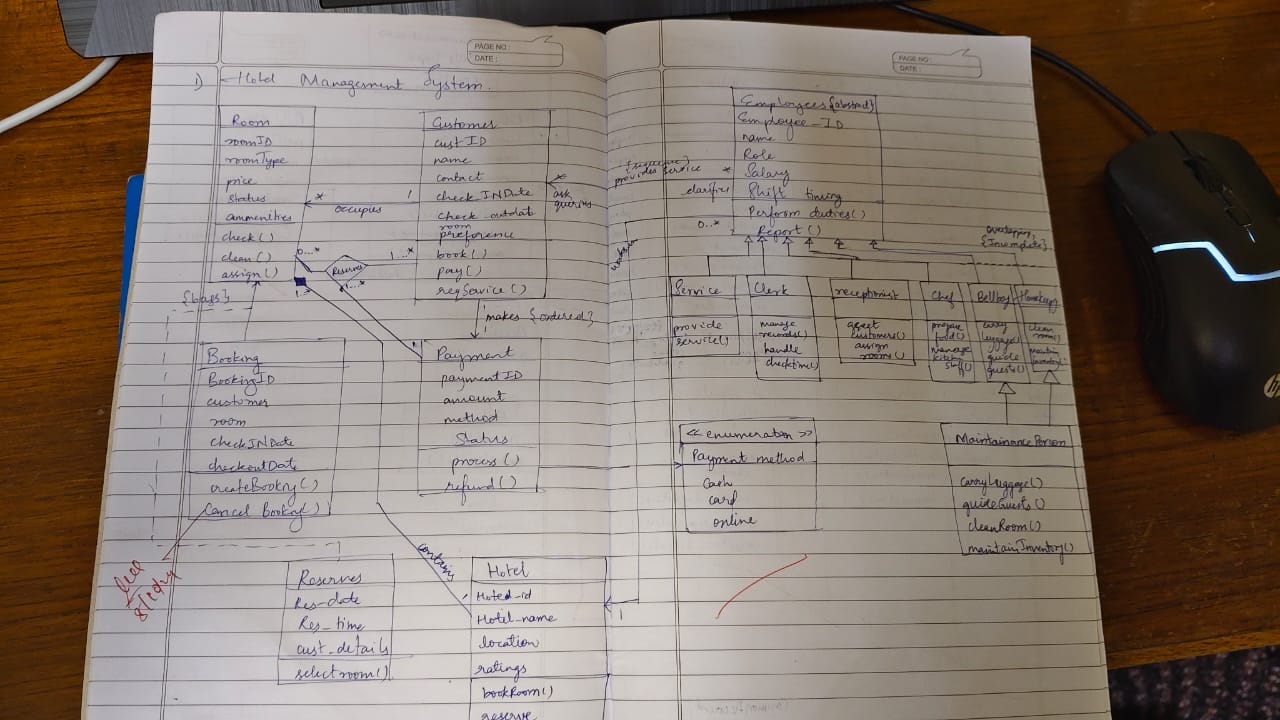 PAGE NO :
DATE :
PAGE NO :
DATE :
1) Hotel Management System.
Room
roomID
roomType
price
status
ammenities
check()
clean()
assign()
Customer
cust ID
name
contact
check_INDate
check_outdate
room
preference
book()
pay()
reqService()
* occupies 1
* ask
queries
0..*
Reserves
1...*
{bags}
makes {ordered}
1
Booking
BookingID
customer
room
checkINDate
checkoutDate
createBooking()
Cancel Booking()
Payment
paymentID
amount
method
Status
process()
refund()
Reserves
Res-date
Res_time
cust_details
selectroom()
contains
Hotel
Hotel_id
Hotel_name
location
ratings
bookRoom()
reserve
1
Employees {abstract}
Employee_ID
name
Role
Salary
Shift timing
Perform duties()
Report()
provides service *
0..*
overlapping,
Service
provide
service()
Clerk
manage
records()
handle
checktime()
receptionist
greet
customers()
assign
rooms()
Chef
prepare
food()
manage
kitchen
staff()
Bellboy
carry
luggage()
guide
guests()
clean
room()
maintain
<< enumeration >>
Payment method
Cash
card
online
Maintainance Person
carryLuggage()
guideGuests()
cleanRoom()
maintainInventory()
hp